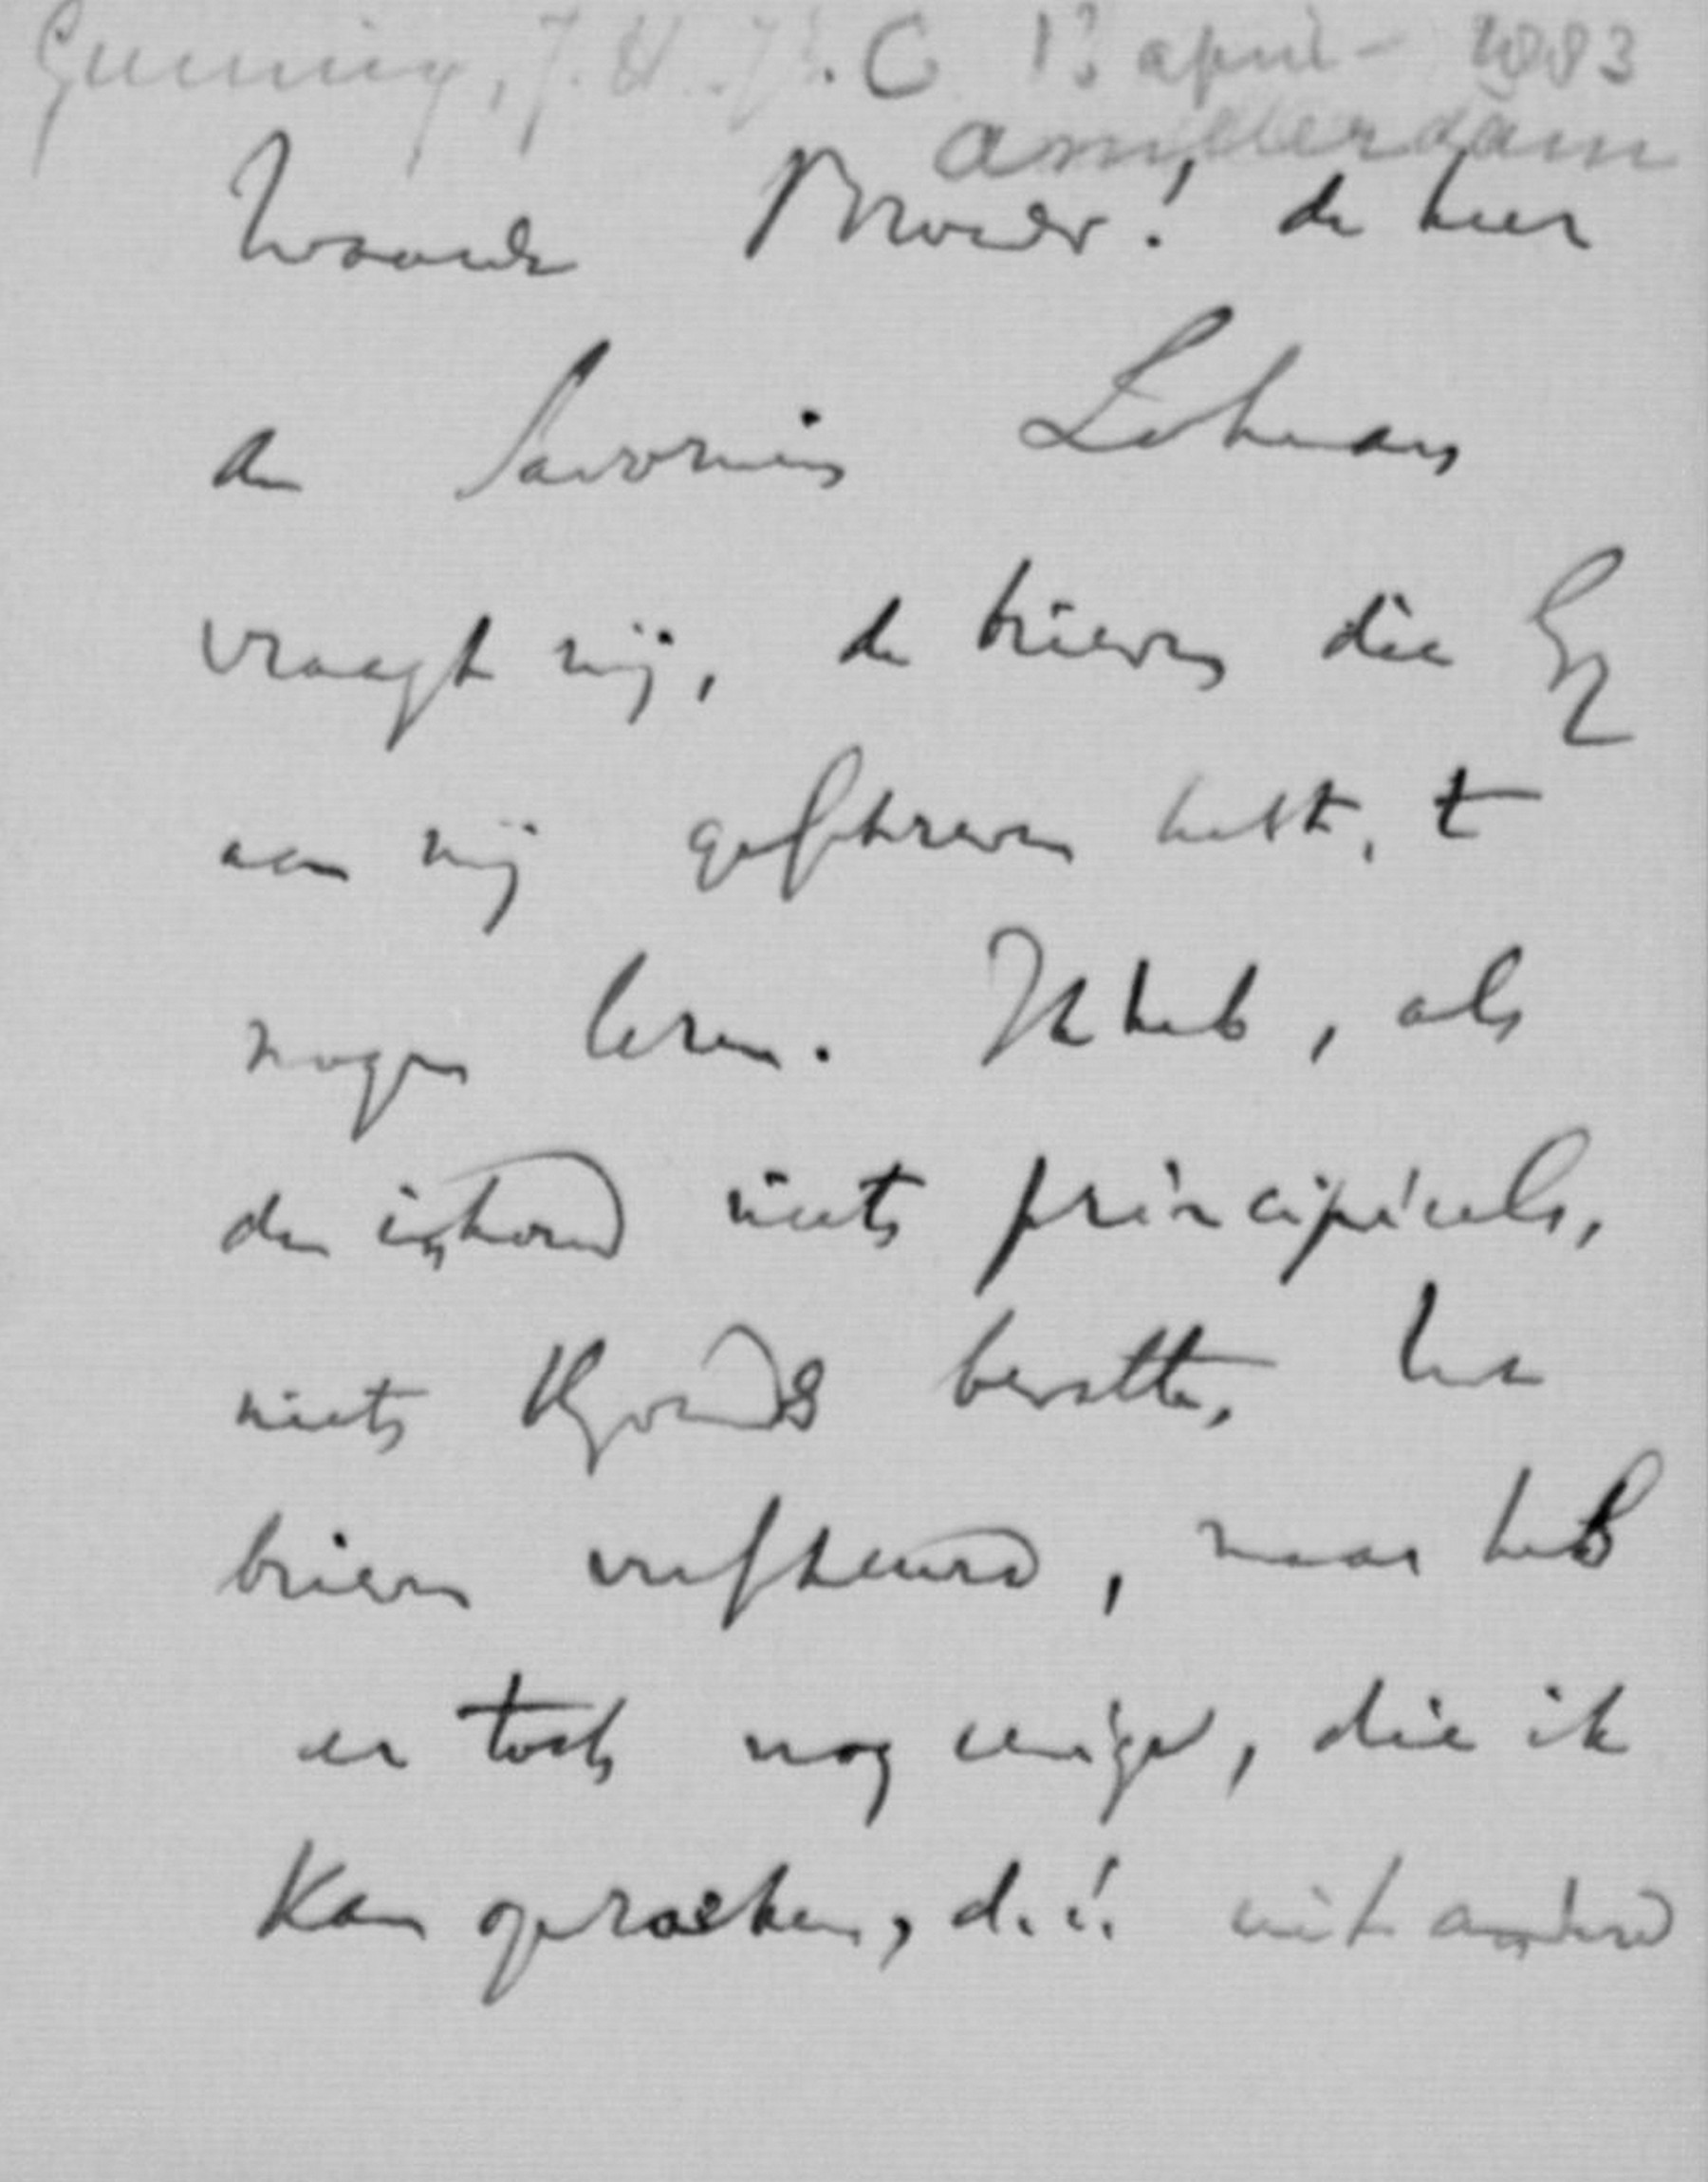 Gunning, J.H. Jr. C 13 april - 1883
Amsterdam
Waarde Broeder! de heer
de Savornin Lohman
vraagt mij, de brieven die Gij
aan mij geschreven hebt, te
mogen lezen. Ik heb, als
den inhoud niets principieels,
niets blijvends bevatte, Uwe
brieven verscheurd, maar heb
er toch nog eenige, die ik
kan opzoeken, d.i. niet